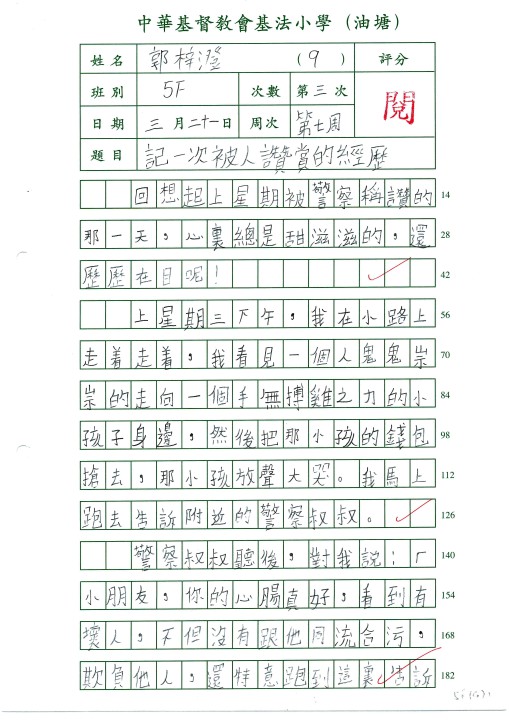 中華基督教會基法小學（油塘）
姓名 郭梓澄 （9） 評分
班別 5F 次數 第三次 閱
日期 三月二十一日 周次 第七周
題目 記一次被人讚賞的經歷
回想起上星期被警察稱讚的 14
那一天，心裏總是甜滋滋的，還 28
歷歷在目呢！ 42
上星期三下午，我在小路上 56
走着走着，我看見一個人鬼鬼祟 70
祟的走向一個手無搏雞之力的小 84
孩子身邊，然後把那小孩的錢包 98
搶去，那小孩放聲大哭。我馬上 112
跑去告訴附近的警察叔叔。 126
警察叔叔聽後，對我說：「 140
小朋友，你的心腸真好，看到有 154
壞人，不但沒有跟他同流合污， 168
欺負他人，還特意跑到這裏告訴 182